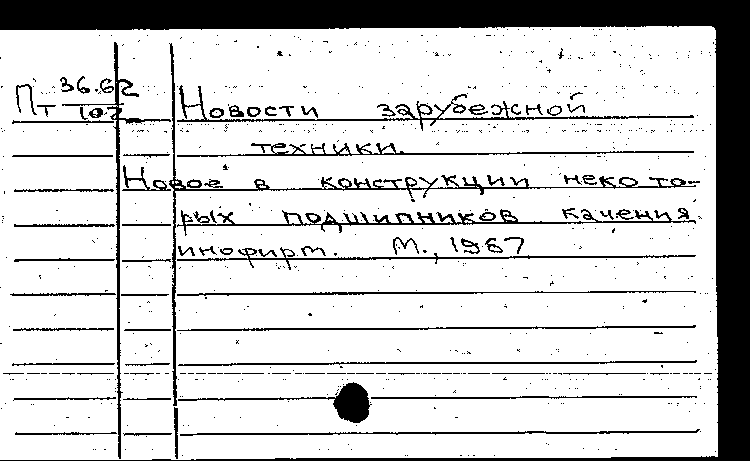 Пт 36.62
107
Новости зарубежной
техники.
Новое в конструкции некото-
рых подшипников качения
инофирм. М., 1967